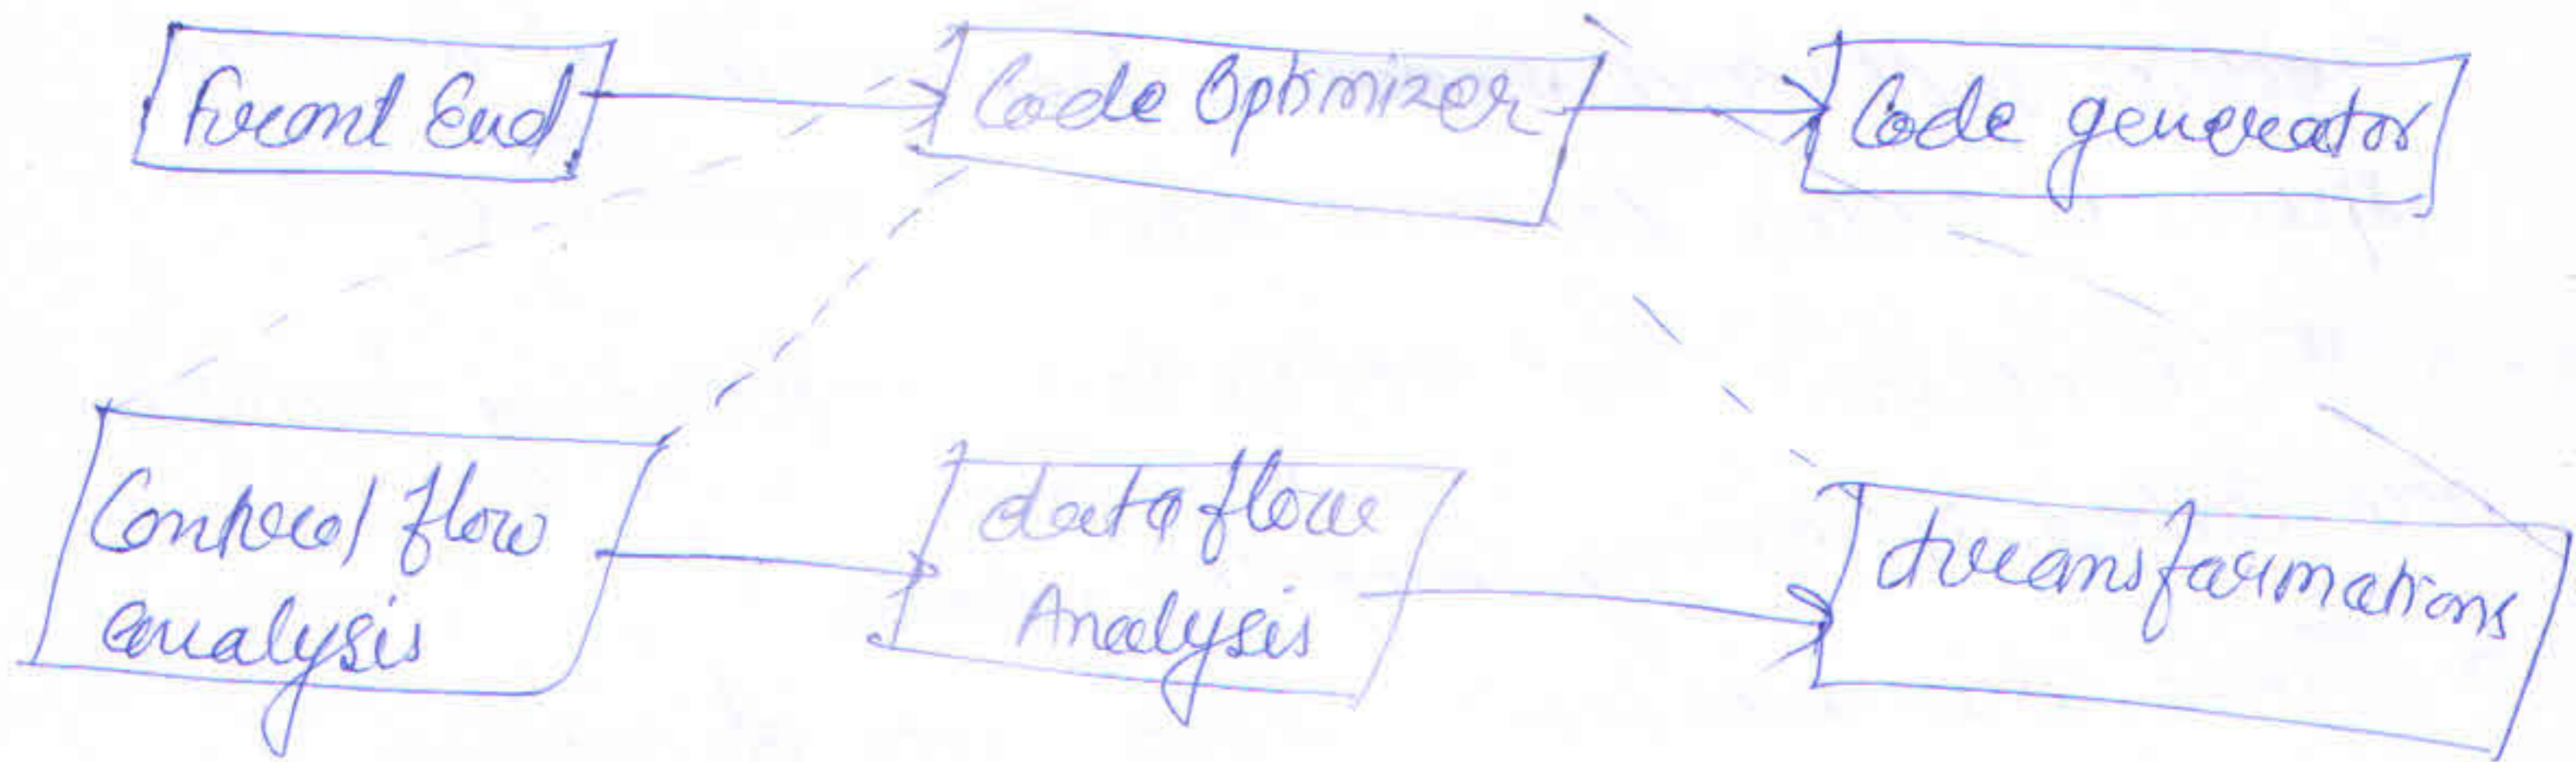 Front End
Code Optimizer
Code generator
Control flow
analysis
data flow
Analysis
transformations